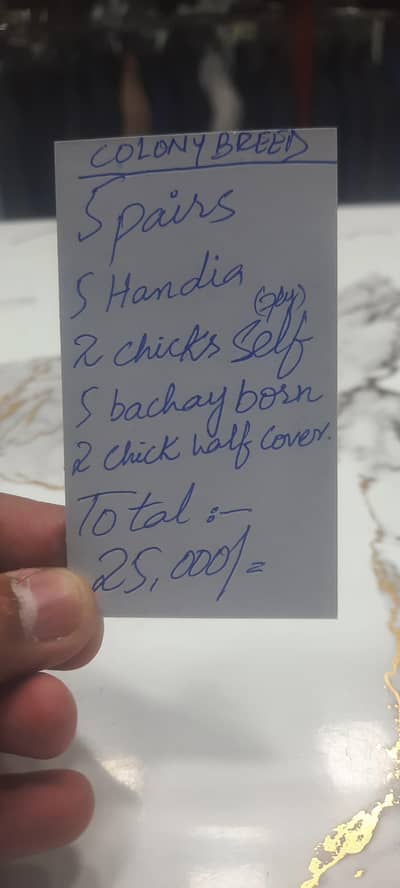 COLONY BREED
5 pairs
5 Handia
(fly)
2 chicks Self
5 bachay born
2 chick half cover.
Total :-
25,000/=